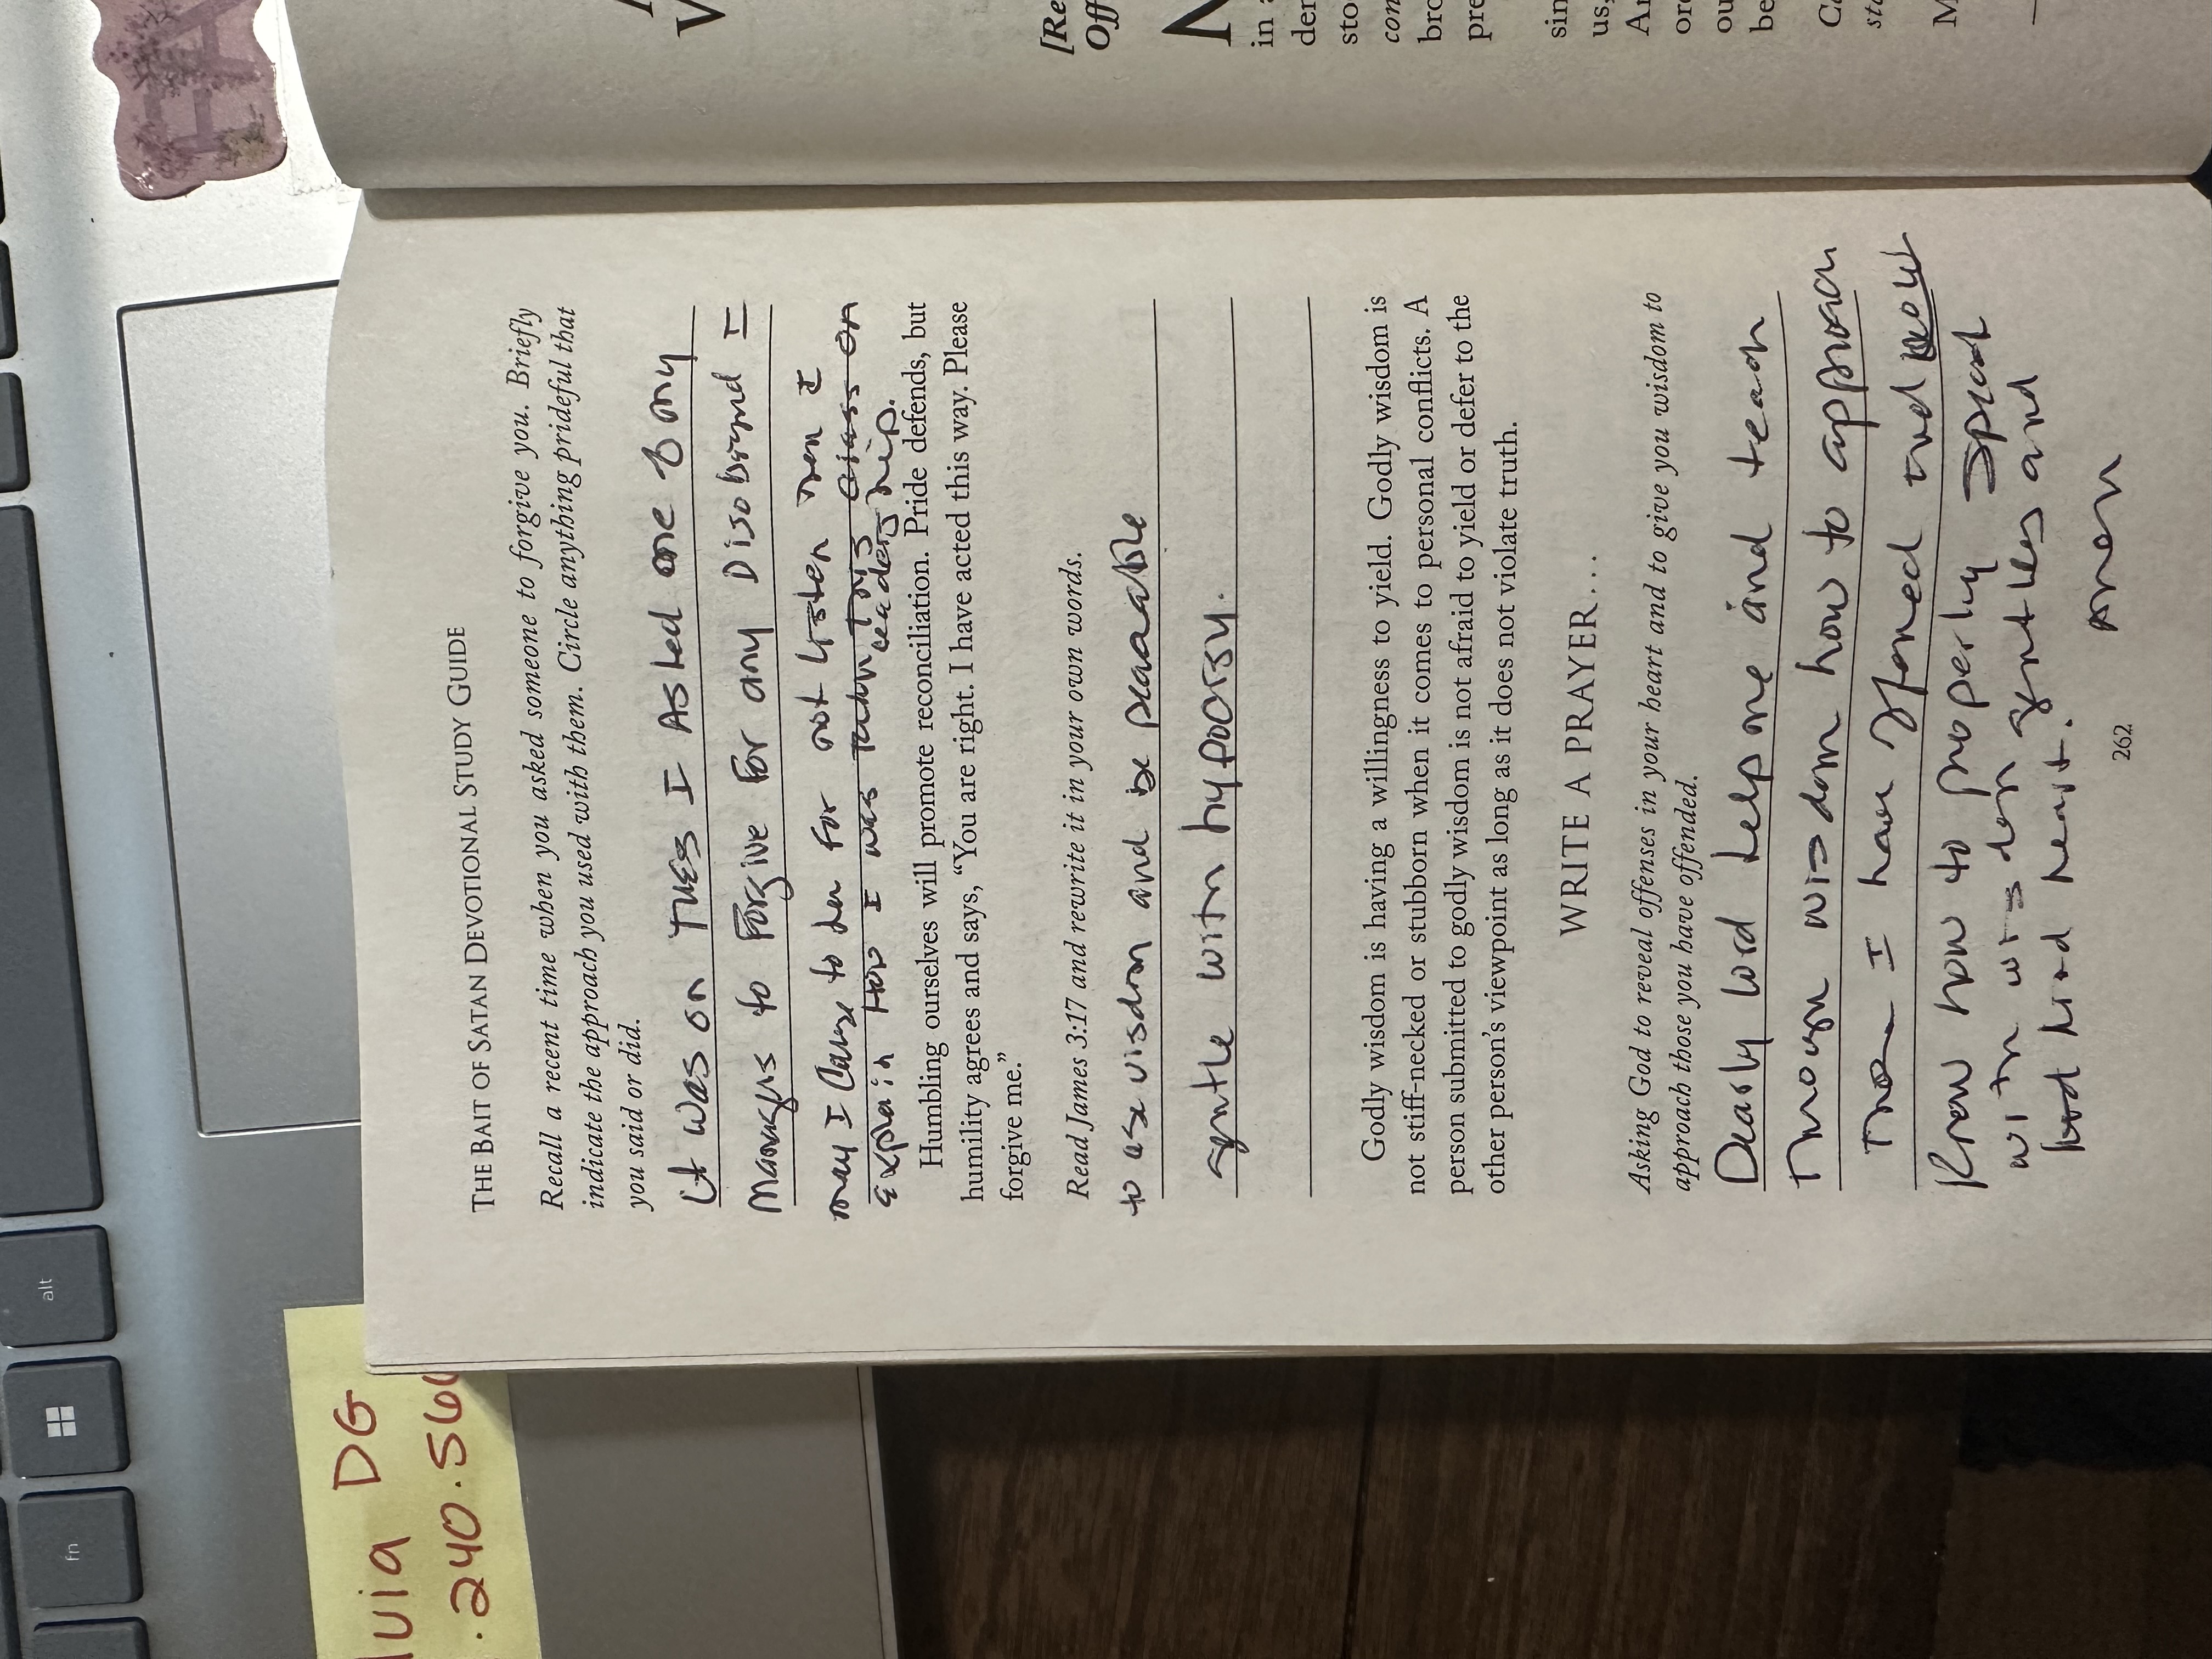 THE BAIT OF SATAN DEVOTIONAL STUDY GUIDE
Recall a recent time when you asked someone to forgive you. Briefly
indicate the approach you used with them. Circle anything prideful that
you said or did.
It was on TUES I Asked one of my
Managers to Forgive For any Disobeyed I
may I Cause to her For not listen when I
explain How I was taken this class on
leadership.
Humbling ourselves will promote reconciliation. Pride defends, but
humility agrees and says, “You are right. I have acted this way. Please
forgive me.”
Read James 3:17 and rewrite it in your own words.
to use wisdom and be peaaable
gentle with hypocrisy.
Godly wisdom is having a willingness to yield. Godly wisdom is
not stiff-necked or stubborn when it comes to personal conflicts. A
person submitted to godly wisdom is not afraid to yield or defer to the
other person’s viewpoint as long as it does not violate truth.
WRITE A PRAYER…
Asking God to reveal offenses in your heart and to give you wisdom to
approach those you have offended.
Dearly Lord help me and teach
Through wisdom how to approach
I have and
Know how to properly speak
with wisdom gentles and
kind heart.
Amen
262
alt
fn
luia DG
.240.560
[Re
Off
in a
der
sto
con
bro
pre
sin
us,
An
ord
ou
be
Ca
sta
M